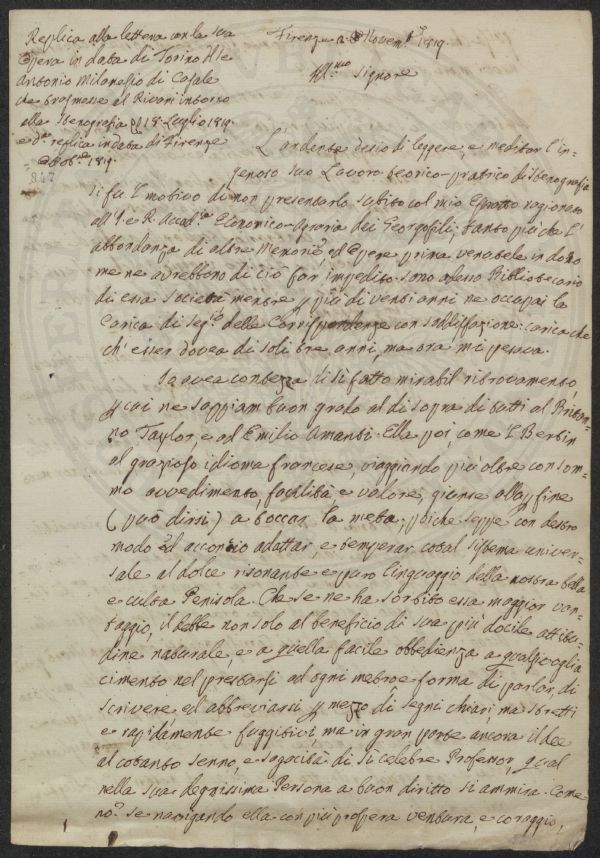 Replica alla lettera con la sua
Opera in data di Torino del Sr
Antonio Milanesio di Casale
che trasmesse al Rivani intorno
alla Stenografia di 18 Luglio 1819
e da replica in data di Firenze
1819.
847
Firenze a Novembe 1819
Illmo Signore
L'ardente desio di leggere, e meditar l'in-
gegnoso suo Lavoro teorico-pratico di Stenografia
si fu l motivo di non presentarlo subito col mio Estratto ragionato
all'I. e R. Accada Economico-Agraria dei Georgofili; tanto più che l'
abbondanza di altre Memorie, ed Opere prima venutele in dono
me ne avrebbono di ciò far impedito. Sono adesso Bibliotecario
di essa Società mentre p più di venti anni ne occupai la
Carica di Sego delle Corrispondenze con soddisfazione: carica che
ch'esser dovea di soli tre anni, ma ora mi pesava.
Io avea contezza di sì fatto mirabil ritrovamento,
p cui ne sappiam buon grado al di sopra di tutti al Britan-
no Taylor, e ad Emilio Amanti. Ella poi, come l Bertin
al grazioso idioma francese, viaggiando più oltre con som-
mo avvedimento, facilità, e valore, giunse alla p fine
(può dirsi) a toccar la meta; poichè seppe con destro
modo ed acconcio adattar, e temperar cotal sistema univer-
sale al dolce risonante e puro linguaggio della nostra bella
e culta Penisola. Che se ne ha sortito essa maggior van-
taggio, il debbe non solo al beneficio di sua più docile attitu-
dine naturale, e a quella facile obbedienza a qualsivoglia
cimento nel prestarsi ad ogni metro e forma di parlar, di
scrivere ed abbreviarsi p mezzo di segni chiari, ma stretti
e rapidamente fuggitivi, ma in gran parte ancora il dee
al cotanto senno, e sagacità di sì celebre Professor, qual
nella sua degnissima Persona a buon diritto si ammira. Come
no? se navigando ella con più prospera ventura, e coraggio,